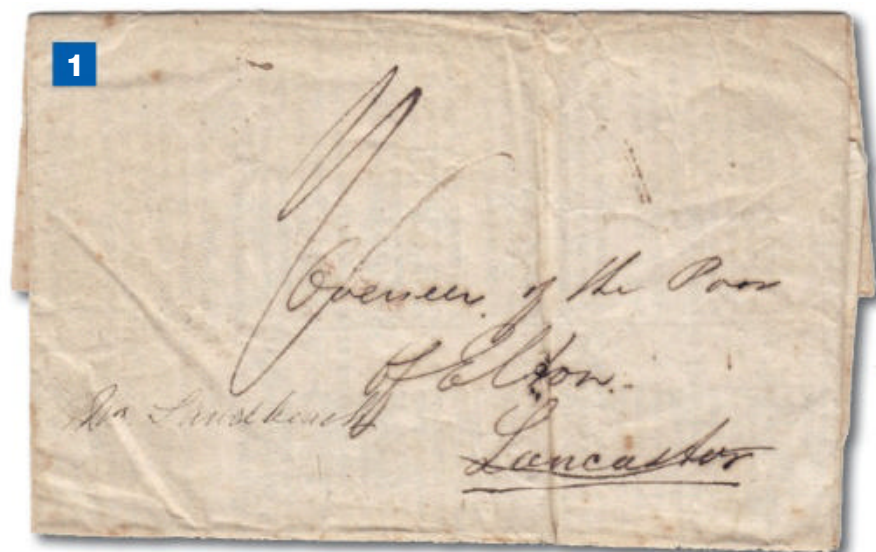 1
Overseer of the Poor
of Elton.
Lancaster